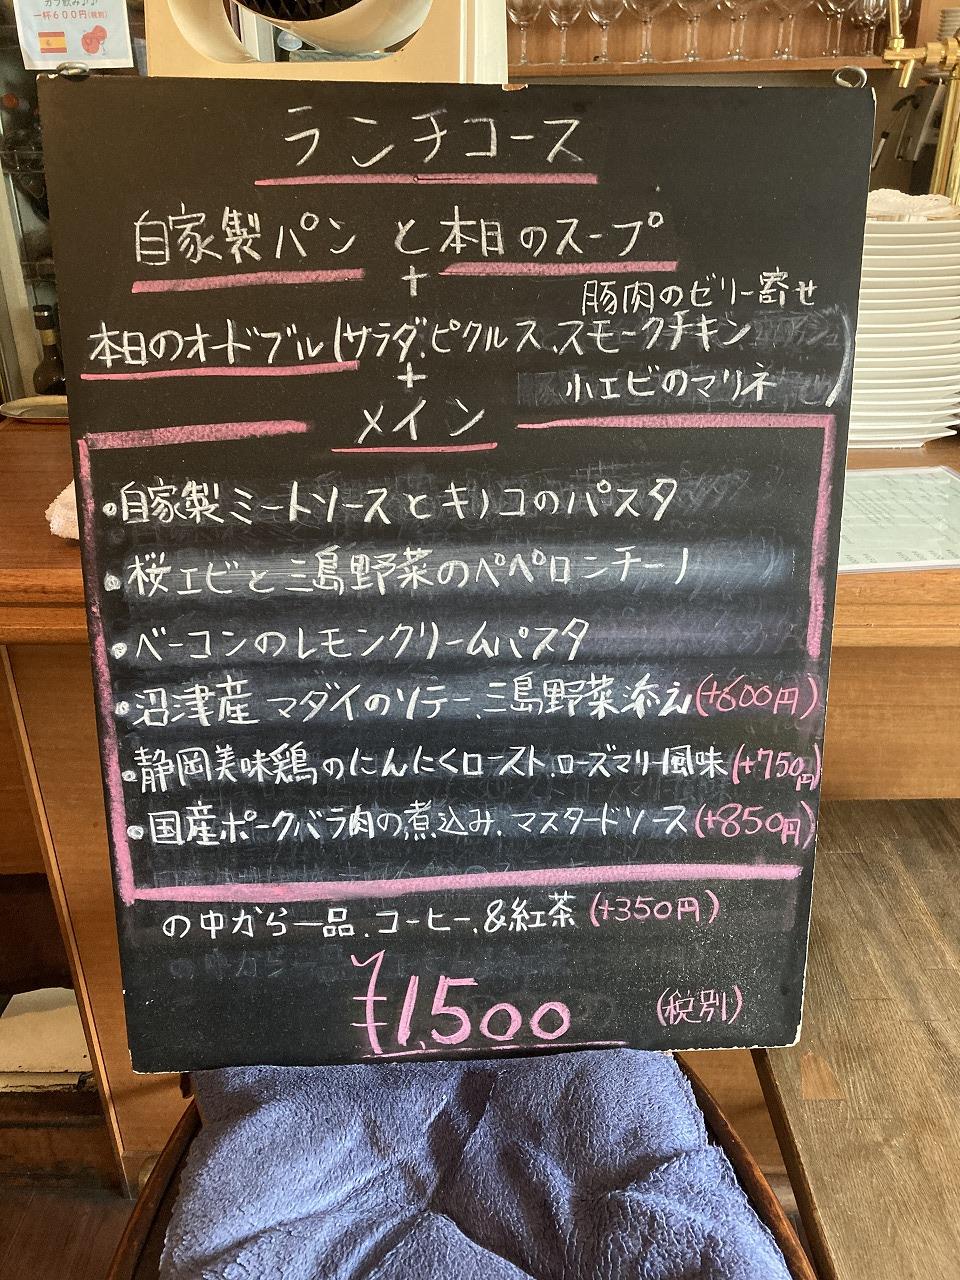 ガブ飲み♪♪
一杯600円(税別)
ランチコース
自家製パン と 本日のスープ
+
豚肉のゼリー寄せ
本日のオードブル(サラダ、ピクルス、スモークチキン
+
小エビのマリネ )
メイン
・自家製ミートソースとキノコのパスタ
・桜エビと三島野菜のペペロンチーノ
・ベーコンのレモンクリームパスタ
・沼津産マダイのソテー、三島野菜添え(+600円)
・静岡美味鶏のにんにくロースト、ローズマリー風味(+750円)
・国産ポークバラ肉の煮込み、マスタードソース(+850円)
の中から一品、コーヒー、&紅茶(+350円)
¥1,500 (税別)